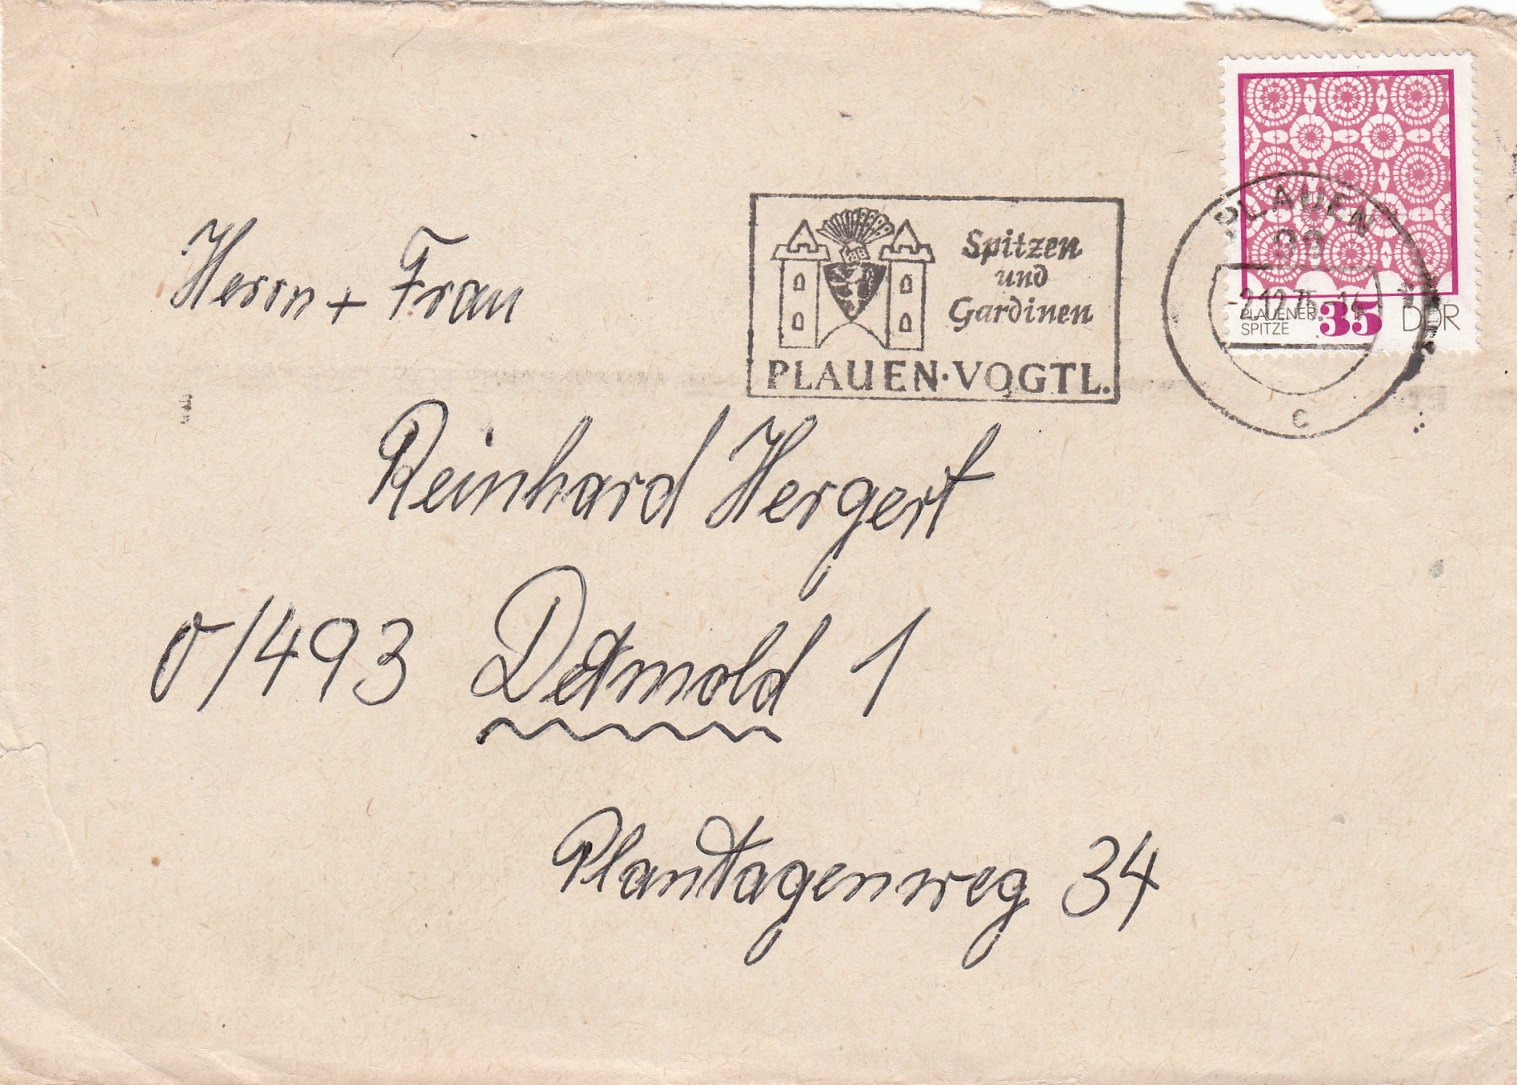 Spitzen
und
Gardinen
PLAUEN·VOGTL.
PLAUEN
-2.12.75
c
PLAUENER
SPITZE
35
DDR
Herrn + Frau
Reinhard Hergert
0/493 Detmold 1
Plantagenweg 34